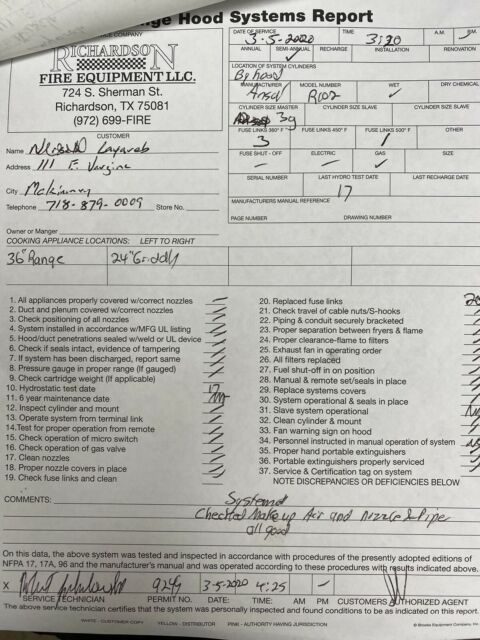 nge Hood Systems Report
CE COMPANY
RICHARDSON
FIRE EQUIPMENT LLC.
724 S. Sherman St.
Richardson, TX 75081
(972) 699-FIRE
DATE OF SERVICE 3-5-2020 TIME 3:20 A.M. P.M.
ANNUAL SEMI-ANNUAL RECHARGE INSTALLATION RENOVATION
LOCATION OF SYSTEM CYLINDERS
By hood
MANUFACTURER MODEL NUMBER WET DRY CHEMICAL
Ansul R102 ✓
CYLINDER SIZE MASTER CYLINDER SIZE SLAVE CYLINDER SIZE SLAVE
3g
FUSE LINKS 360° F FUSE LINKS 450° F FUSE LINKS 500° F OTHER
3 1
FUSE SHUT - OFF ELECTRIC GAS SIZE
— — ✓
SERIAL NUMBER LAST HYDRO TEST DATE LAST RECHARGE DATE
17
MANUFACTURERS MANUAL REFERENCE
PAGE NUMBER DRAWING NUMBER
CUSTOMER
Name
Address 111 E.
City McKinney
Telephone 718-879-0009 Store No.
Owner or Manger
COOKING APPLIANCE LOCATIONS: LEFT TO RIGHT
36" Range 24" Griddly
1. All appliances properly covered w/correct nozzles
2. Duct and plenum covered w/correct nozzles
3. Check positioning of all nozzles
4. System installed in accordance w/MFG UL listing
5. Hood/duct penetrations sealed w/weld or UL device
6. Check if seals intact, evidence of tampering
7. If system has been discharged, report same
8. Pressure gauge in proper range (If gauged)
9. Check cartridge weight (If applicable)
10. Hydrostatic test date 17
11. 6 year maintenance date
12. Inspect cylinder and mount
13. Operate system from terminal link
14. Test for proper operation from remote
15. Check operation of micro switch
16. Check operation of gas valve
17. Clean nozzles
18. Proper nozzle covers in place
19. Check fuse links and clean
20. Replaced fuse links
21. Check travel of cable nuts/S-hooks
22. Piping & conduit securely bracketed
23. Proper separation between fryers & flame
24. Proper clearance-flame to filters
25. Exhaust fan in operating order
26. All filters replaced
27. Fuel shut-off in on position
28. Manual & remote set/seals in place
29. Replace systems covers
30. System operational & seals in place
31. Slave system operational
32. Clean cylinder & mount
33. Fan warning sign on hood
34. Personnel instructed in manual operation of system
35. Proper hand portable extinguishers
36. Portable extinguishers properly serviced
37. Service & Certification tag on system
NOTE DISCREPANCIES OR DEFICIENCIES BELOW
COMMENTS:
System
Checked Make up Air and Nozzle & Pipe
all good
On this data, the above system was tested and inspected in accordance with procedures of the presently adopted editions of
NFPA 17, 17A, 96 and the manufacturer's manual and was operated according to these procedures with results indicated above.
X 3-5-2020 4:25 —
SERVICE TECHNICIAN PERMIT NO. DATE: TIME: AM PM CUSTOMERS AUTHORIZED AGENT
The above service technician certifies that the system was personally inspected and found conditions to be as indicated on this report.
WHITE - CUSTOMER COPY YELLOW - DISTRIBUTOR PINK - AUTHORITY HAVING JURISDICTION © Brooks Equipment Company, Inc.